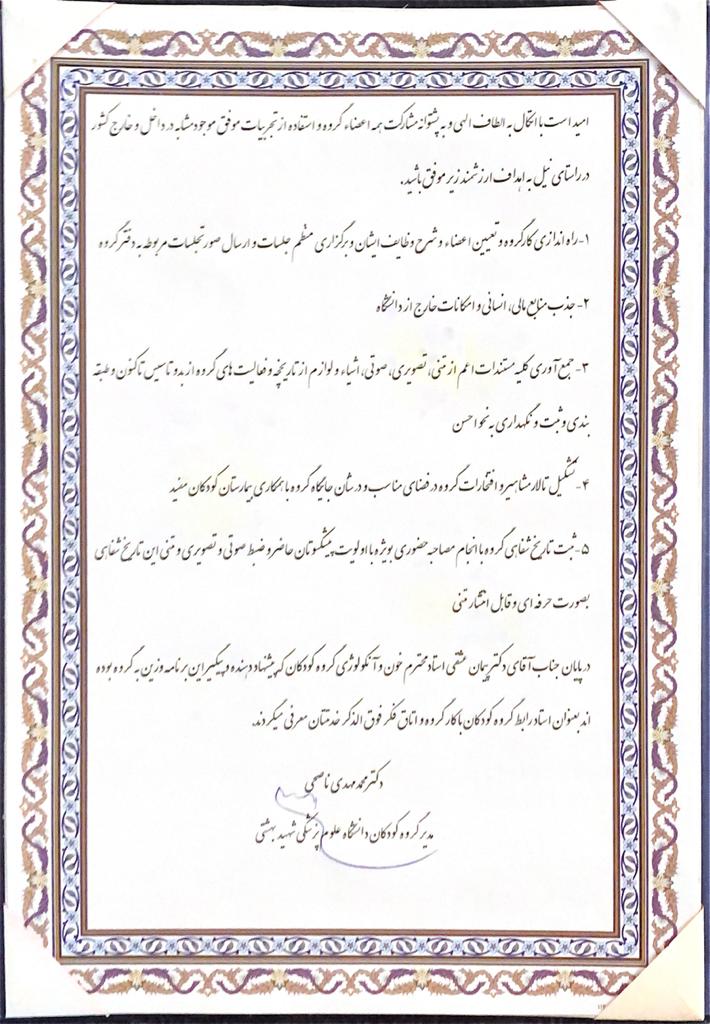 امید است با اتکال به الطاف الهی و به پشتوانه مشارکت همه اعضاء گروه و استفاده از تجربیات موفق موجود مشابه در داخل و خارج کشور
در راستای نیل به اهداف ارزشمند زیر موفق باشید.
۱- راه اندازی کارگروه و تعیین اعضاء و شرح وظایف ایشان و برگزاری منظم جلسات و ارسال صورتجلسات مربوطه به دفتر گروه
۲- جذب منابع مالی، انسانی و امکانات خارج از دانشگاه
۳- جمع آوری کلیه مستندات اعم از متنی، تصویری، صوتی، اشیاء و لوازم از تاریخچه و فعالیت های گروه از بدو تاسیس تاکنون و طبقه
بندی و ثبت و نگهداری به نحو احسن
۴- تشکیل تالار مشاهیر و افتخارات گروه در فضای مناسب و در شان جایگاه گروه با همکاری بیمارستان کودکان مفید
۵- ثبت تاریخ شفاهی گروه با انجام مصاحبه حضوری بویژه با اولویت پیشکسوتان حاضر و ضبط صوتی و تصویری و متنی این تاریخ شفاهی
بصورت حرفه ای و قابل انتشار متنی
در پایان جناب آقای دکتر پیمان عشقی استاد محترم خون و آنکولوژی گروه کودکان که پیشنهاد دهنده و پیگیر این برنامه وزین به گروه بوده
اند بعنوان استاد رابط گروه کودکان با کارگروه و اتاق فکر فوق الذکر خدمتتان معرفی میگردند.
دکتر محمد مهدی ناصحی
مدیر گروه کودکان دانشگاه علوم پزشکی شهید بهشتی